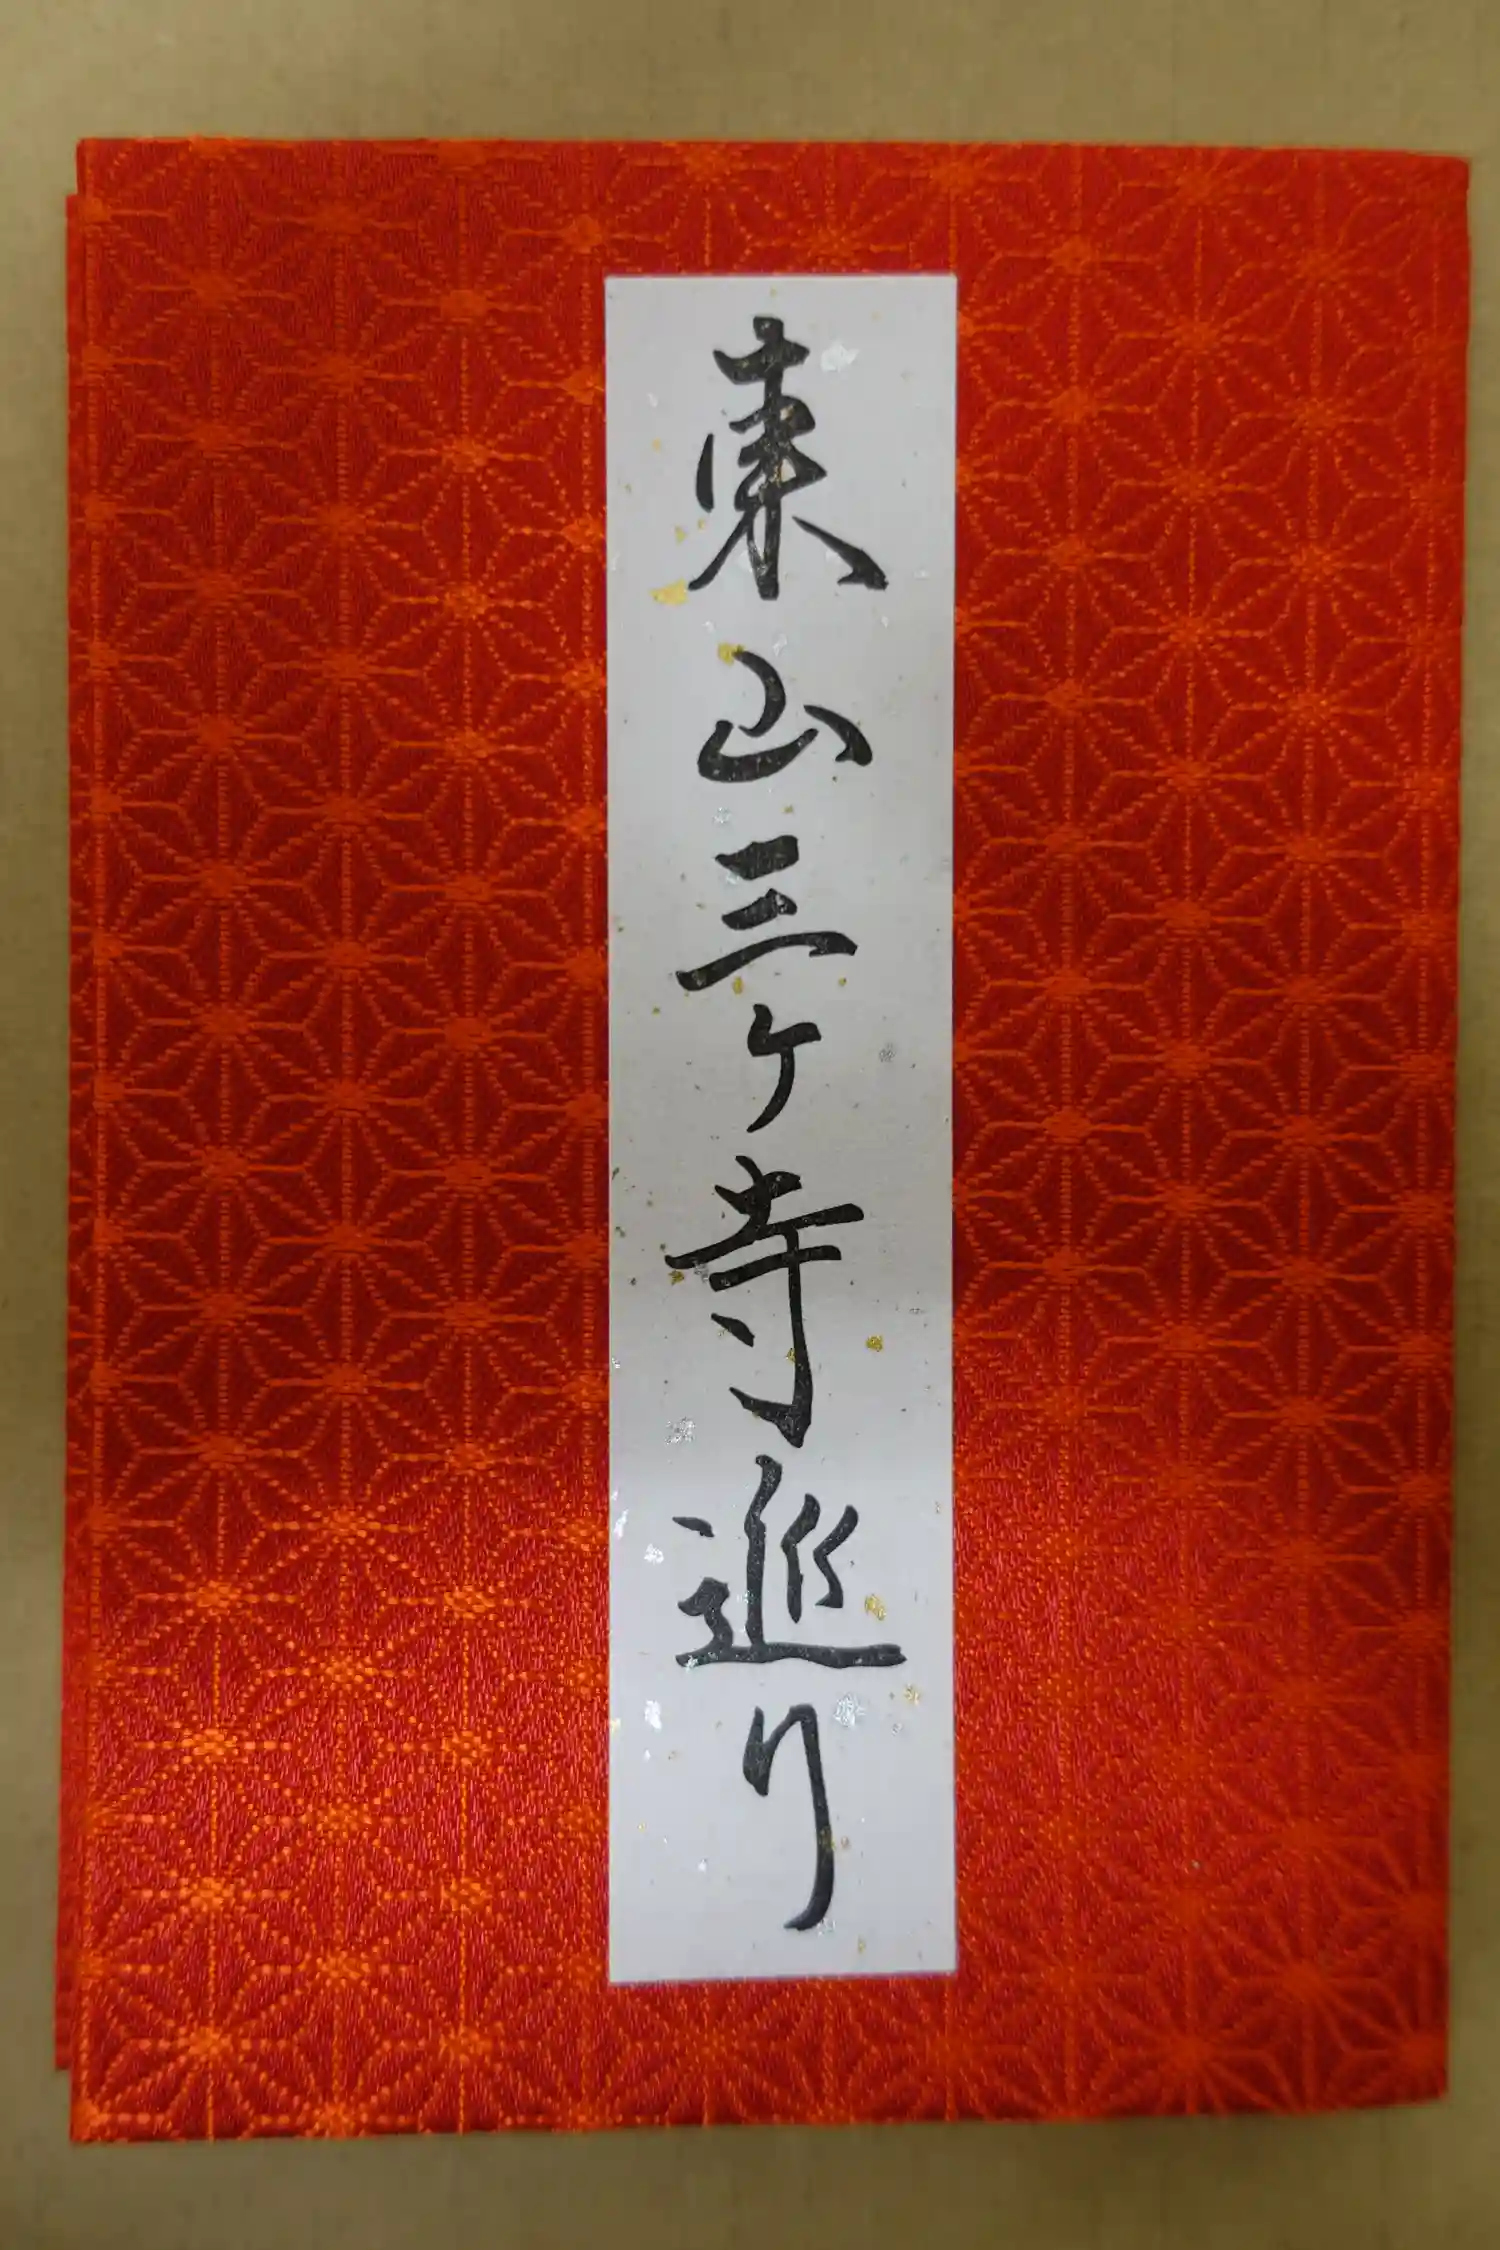 東山三ケ寺巡り